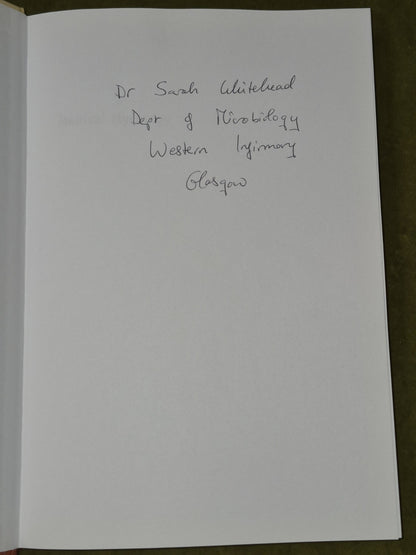 Dr Sarah Whitehead
Dept of Microbiology
Western Infirmary
Glasgow